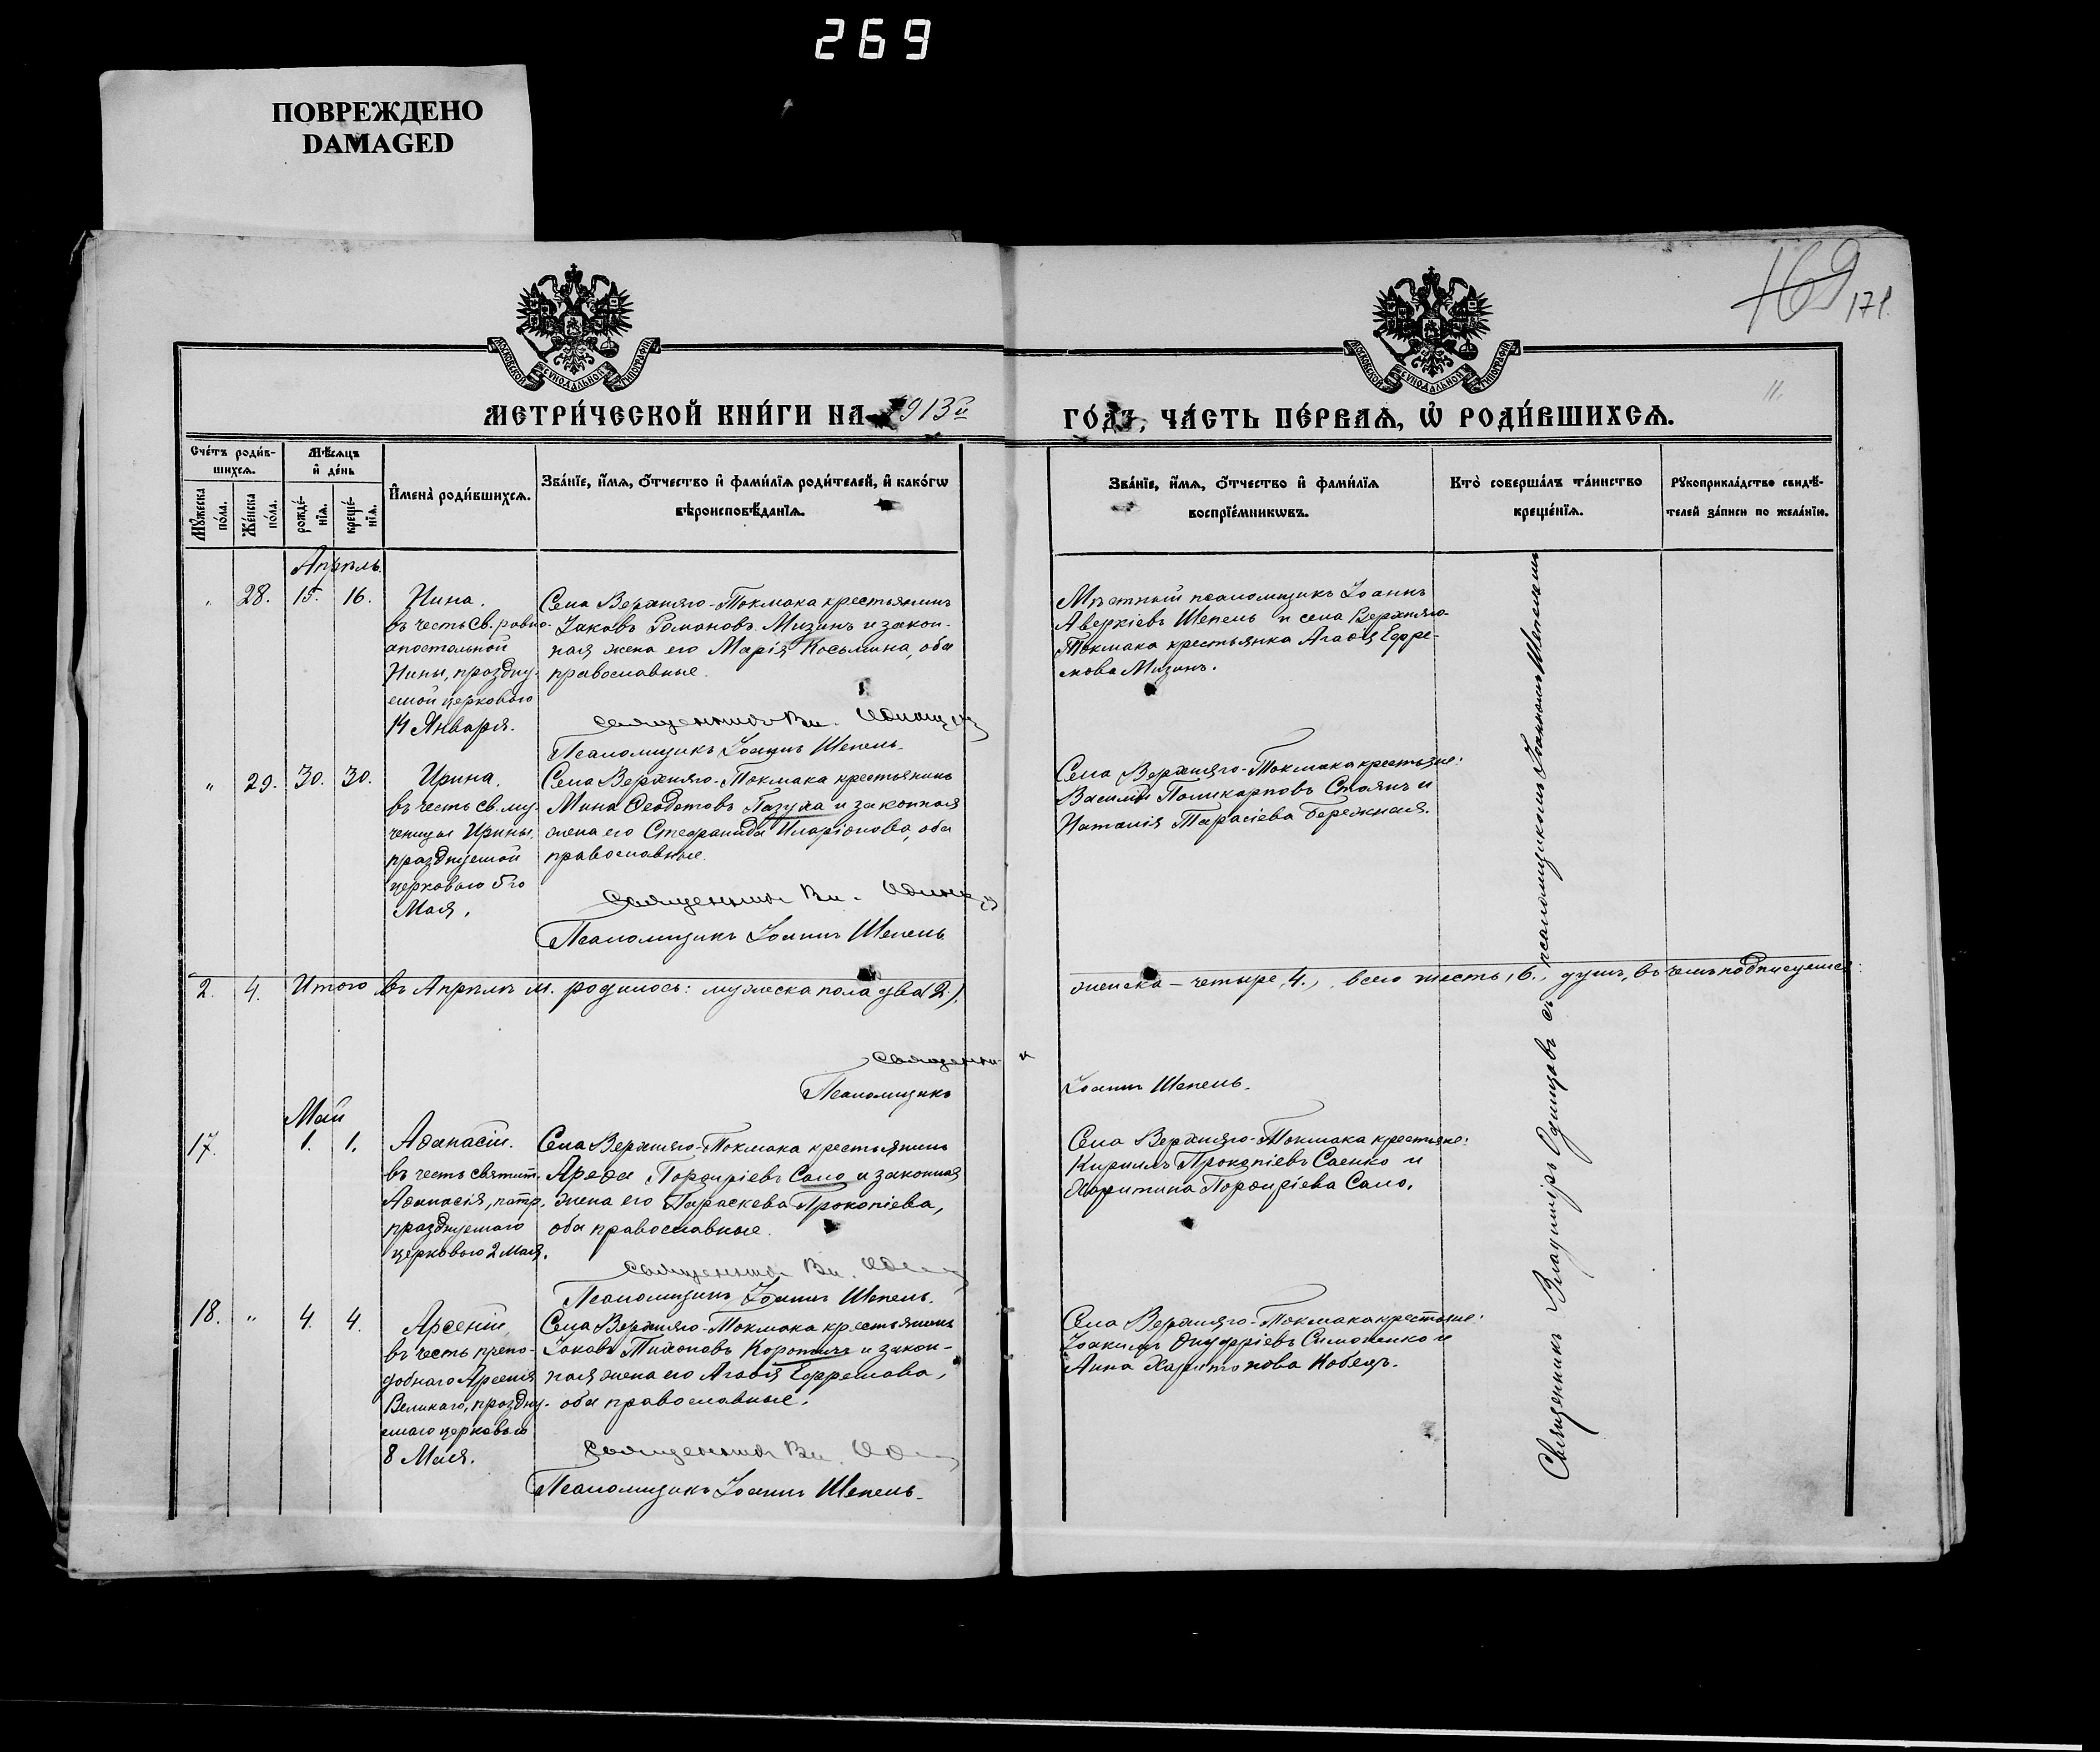 269
ПОВРЕЖДЕНО
DAMAGED
169 171.
11.
МОСКОВСКОЙ СѴНОДАЛЬНОЙ ТИПОГРАФІИ
МОСКОВСКОЙ СѴНОДАЛЬНОЙ ТИПОГРАФІИ
МЕТРИ́ЧЕСКОЙ КНИ́ГИ НА 1913й ГО́ДЪ, ЧА́СТЬ ПЕ́РВАѦ, Ѡ҆ РОДИ́ВШИХСѦ.
Сче́тъ роди́в-
шихсѧ.
Мꙋ́жеска по́ла.
Же́нска по́ла.
Мѣ́сѧцъ
и҆ де́нь
рожде́-
нїѧ.
креще́-
нїѧ.
И҆мена̀ роди́вшихсѧ.
Зва́нїе, и҆́мѧ, ѻ҆́тчество и҆ фами́лїѧ роди́телей, и҆ како́гѡ
вѣроисповѣ́данїѧ.
Зва́нїе, и҆́мѧ, ѻ҆́тчество и҆ фами́лїѧ
воспрїе́мникѡвъ.
Кто̀ соверша́лъ та́инство
креще́нїѧ.
Рꙋкоприкла́дство свидѣ́-
телей за́писи по жела́нїю.
Апрѣль.
" 28. 15. 16.
Нина.
въ честь св. равно-
апостольной
Нины, праздну-
емой церковью
14 Января.
Села Верхняго-Токмака крестьянинъ
Іаковъ Романовъ Мизинъ и закон-
ная жена его Марія Косьмина, оба
православные.
Священникъ Вл. Одинцовъ
Псаломщикъ Іоаннъ Шепель.
Мѣстный псаломщикъ Іоаннъ
Аверкіевъ Шепель и села Верхняго-
Токмака крестьянка Агафія Ефре-
мова Мизинъ.
" 29. 30. 30.
Ирина.
въ честь св. му-
ченицы Ирины,
празднуемой
церковью 5го
Мая.
Села Верхняго-Токмака крестьянинъ
Мина Ѳеодотовъ Пазуха и законная
жена его Стефанида Иларіонова, оба
православные.
Священникъ Вл. Одинцовъ
Псаломщикъ Іоаннъ Шепель.
Села Верхняго-Токмака крестьяне:
Василій Поликарповъ Стоянъ и
Наталія Тарасіева Бережная.
2. 4. Итого въ Апрѣлѣ м. родилось: мужеска пола два (2.), женска — четыре, 4., всего шесть, 6., душъ, въ чемъ подписуемся:
Священникъ
Псаломщикъ Іоаннъ Шепель.
Май
17. 1. 1.
Аѳанасій.
въ честь святит.
Аѳанасія, патр.
празднуемаго
церковью 2 Мая.
Села Верхняго-Токмака крестьянинъ
Арефа Порфиріевъ Сало и законная
жена его Параскева Прокопіева,
оба православные.
Священникъ Вл.
Псаломщикъ Іоаннъ Шепель.
Села Верхняго-Токмака крестьяне:
Кириллъ Прокопіевъ Саенко и
Харитина Порфиріева Сало.
18. " 4. 4.
Арсеній,
въ честь препо-
добнаго Арсенія
Великаго, праздну-
емаго церковью
8 Мая.
Села Верхняго-Токмака крестьянинъ
Іаковъ Тихоновъ Коропъ и закон-
ная жена его Агафія Ефремова,
оба православные.
Священникъ Вл.
Псаломщикъ Іоаннъ Шепель.
Села Верхняго-Токмака крестьяне:
Іоакимъ Онуфріевъ Симоненко и
Анна Харитонова Кобецъ.
Священникъ Владиміръ Одинцовъ съ псаломщикомъ Іоанномъ Шепелемъ